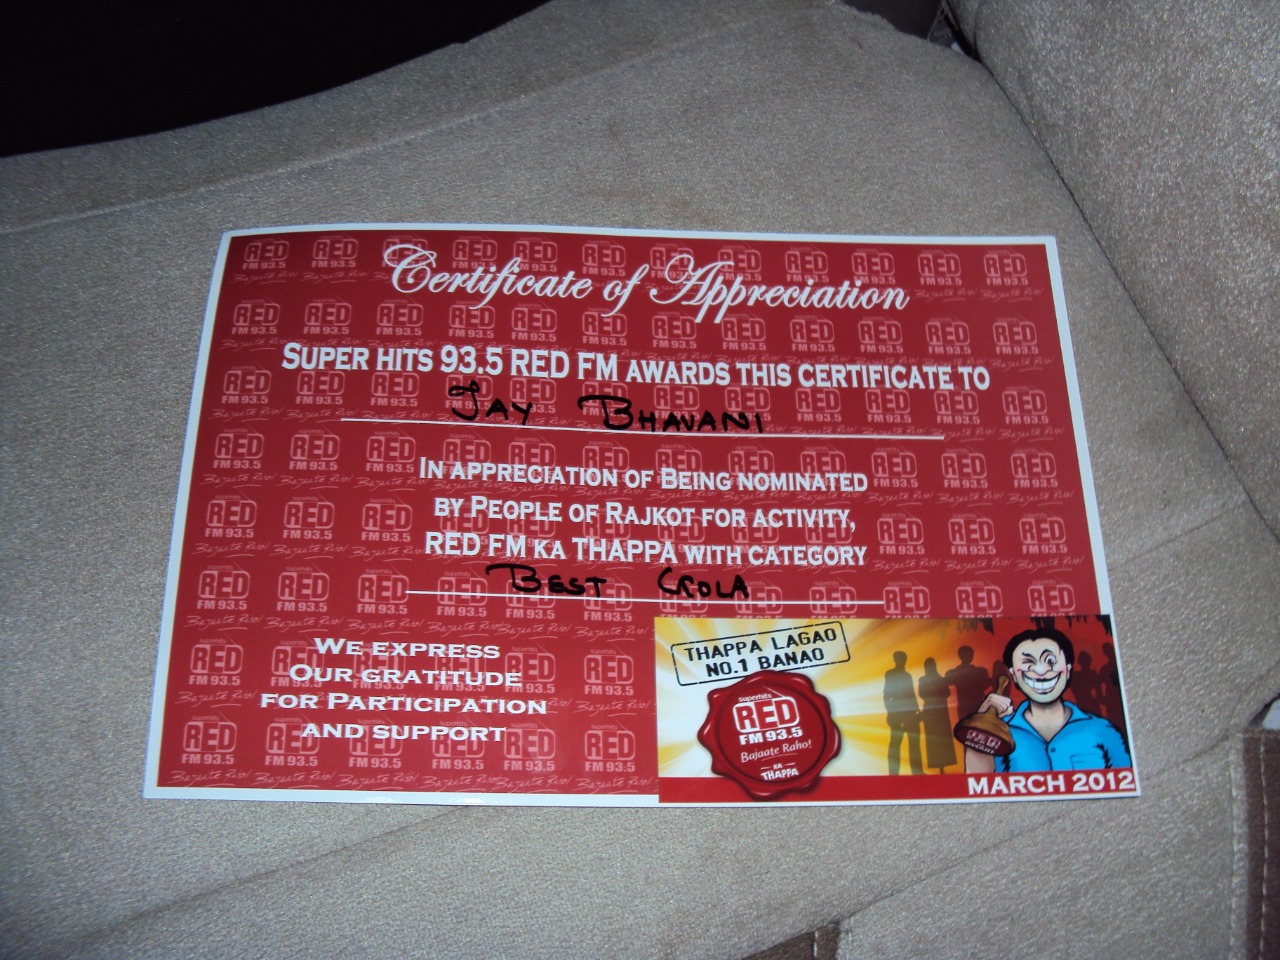 Certificate of Appreciation
SUPER HITS 93.5 RED FM AWARDS THIS CERTIFICATE TO
JAY BHAVANI
IN APPRECIATION OF BEING NOMINATED
BY PEOPLE OF RAJKOT FOR ACTIVITY,
RED FM KA THAPPA WITH CATEGORY
BEST GOLA
WE EXPRESS
OUR GRATITUDE
FOR PARTICIPATION
AND SUPPORT
THAPPA LAGAO
NO.1 BANAO
superhits
RED
FM 93.5
Bajaate Raho!
KA
THAPPA
MARCH 2012